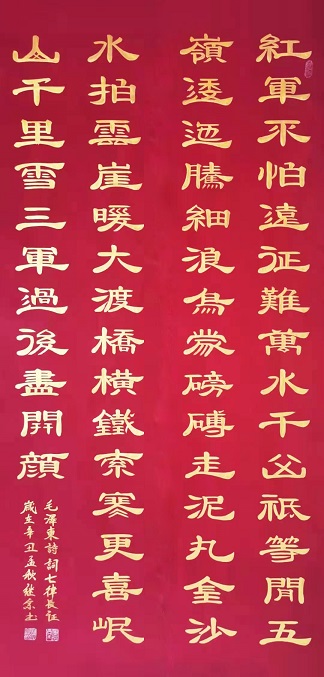 紅軍不怕遠征難萬水千山祇等間五
嶺逶迤騰細浪烏蒙磅礴走泥丸金沙
水拍雲崖暖大渡橋橫鐵索寒更喜岷
山千里雪三軍過後盡開顏
毛澤東詩詞七律長征
歲在辛丑孟秋